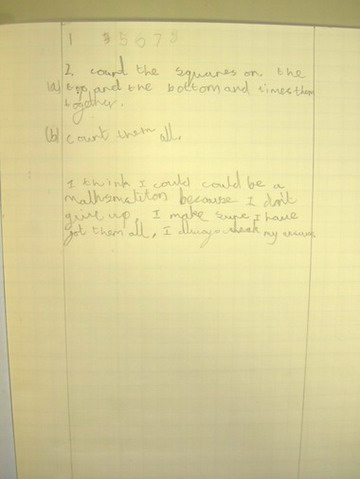 1 5 6 7 8
2, count the squares on the
(a) top and the bottom and times them
together.
(b) count them all.
I think I could could be a
mathsmatiton because I don't
give up, I make sure I have
got them all, I always my